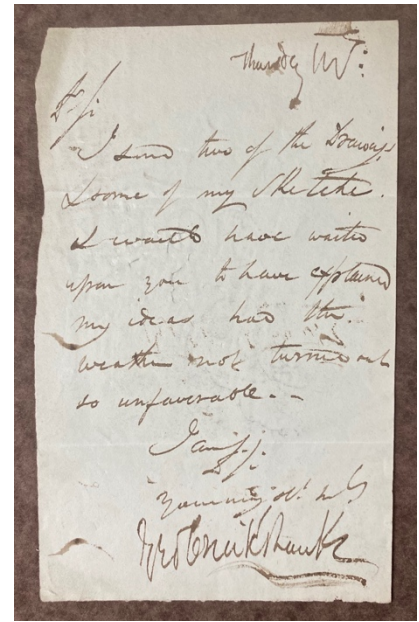 Thursday
Dr Sir
I send two of the Drawings
& some of my Sketches.
I would have waited
upon you to have explained
my ideas had the
weather not turned out
so unfavorable. -
I am Sir
Your
Geo Cruikshank